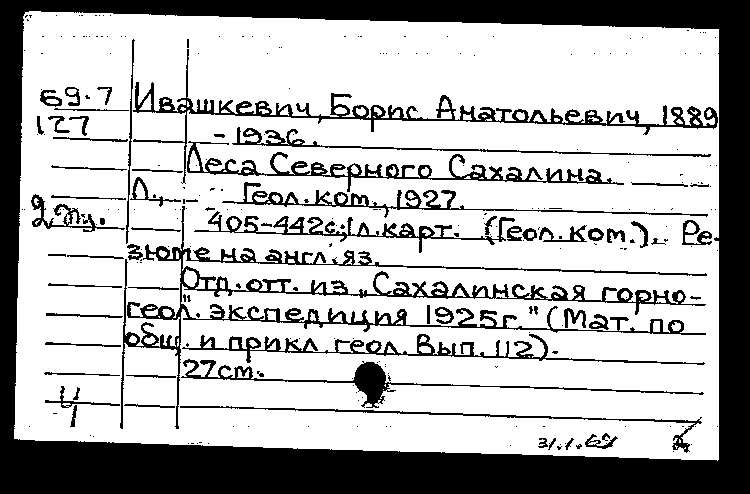 69.7 Ивашкевич, Борис Анатольевич, 1889
127 - 1936.
Леса Северного Сахалина.
Л., Геол. ком., 1927.
405-442с.; 1л. карт. (Геол. ком.). Ре-
зюме на англ. яз.
Отд. отт. из „Сахалинская горно-
геол. экспедиция 1925г." (Мат. по
общ. и прикл. геол. Вып. 112).
27см.
31.1.69